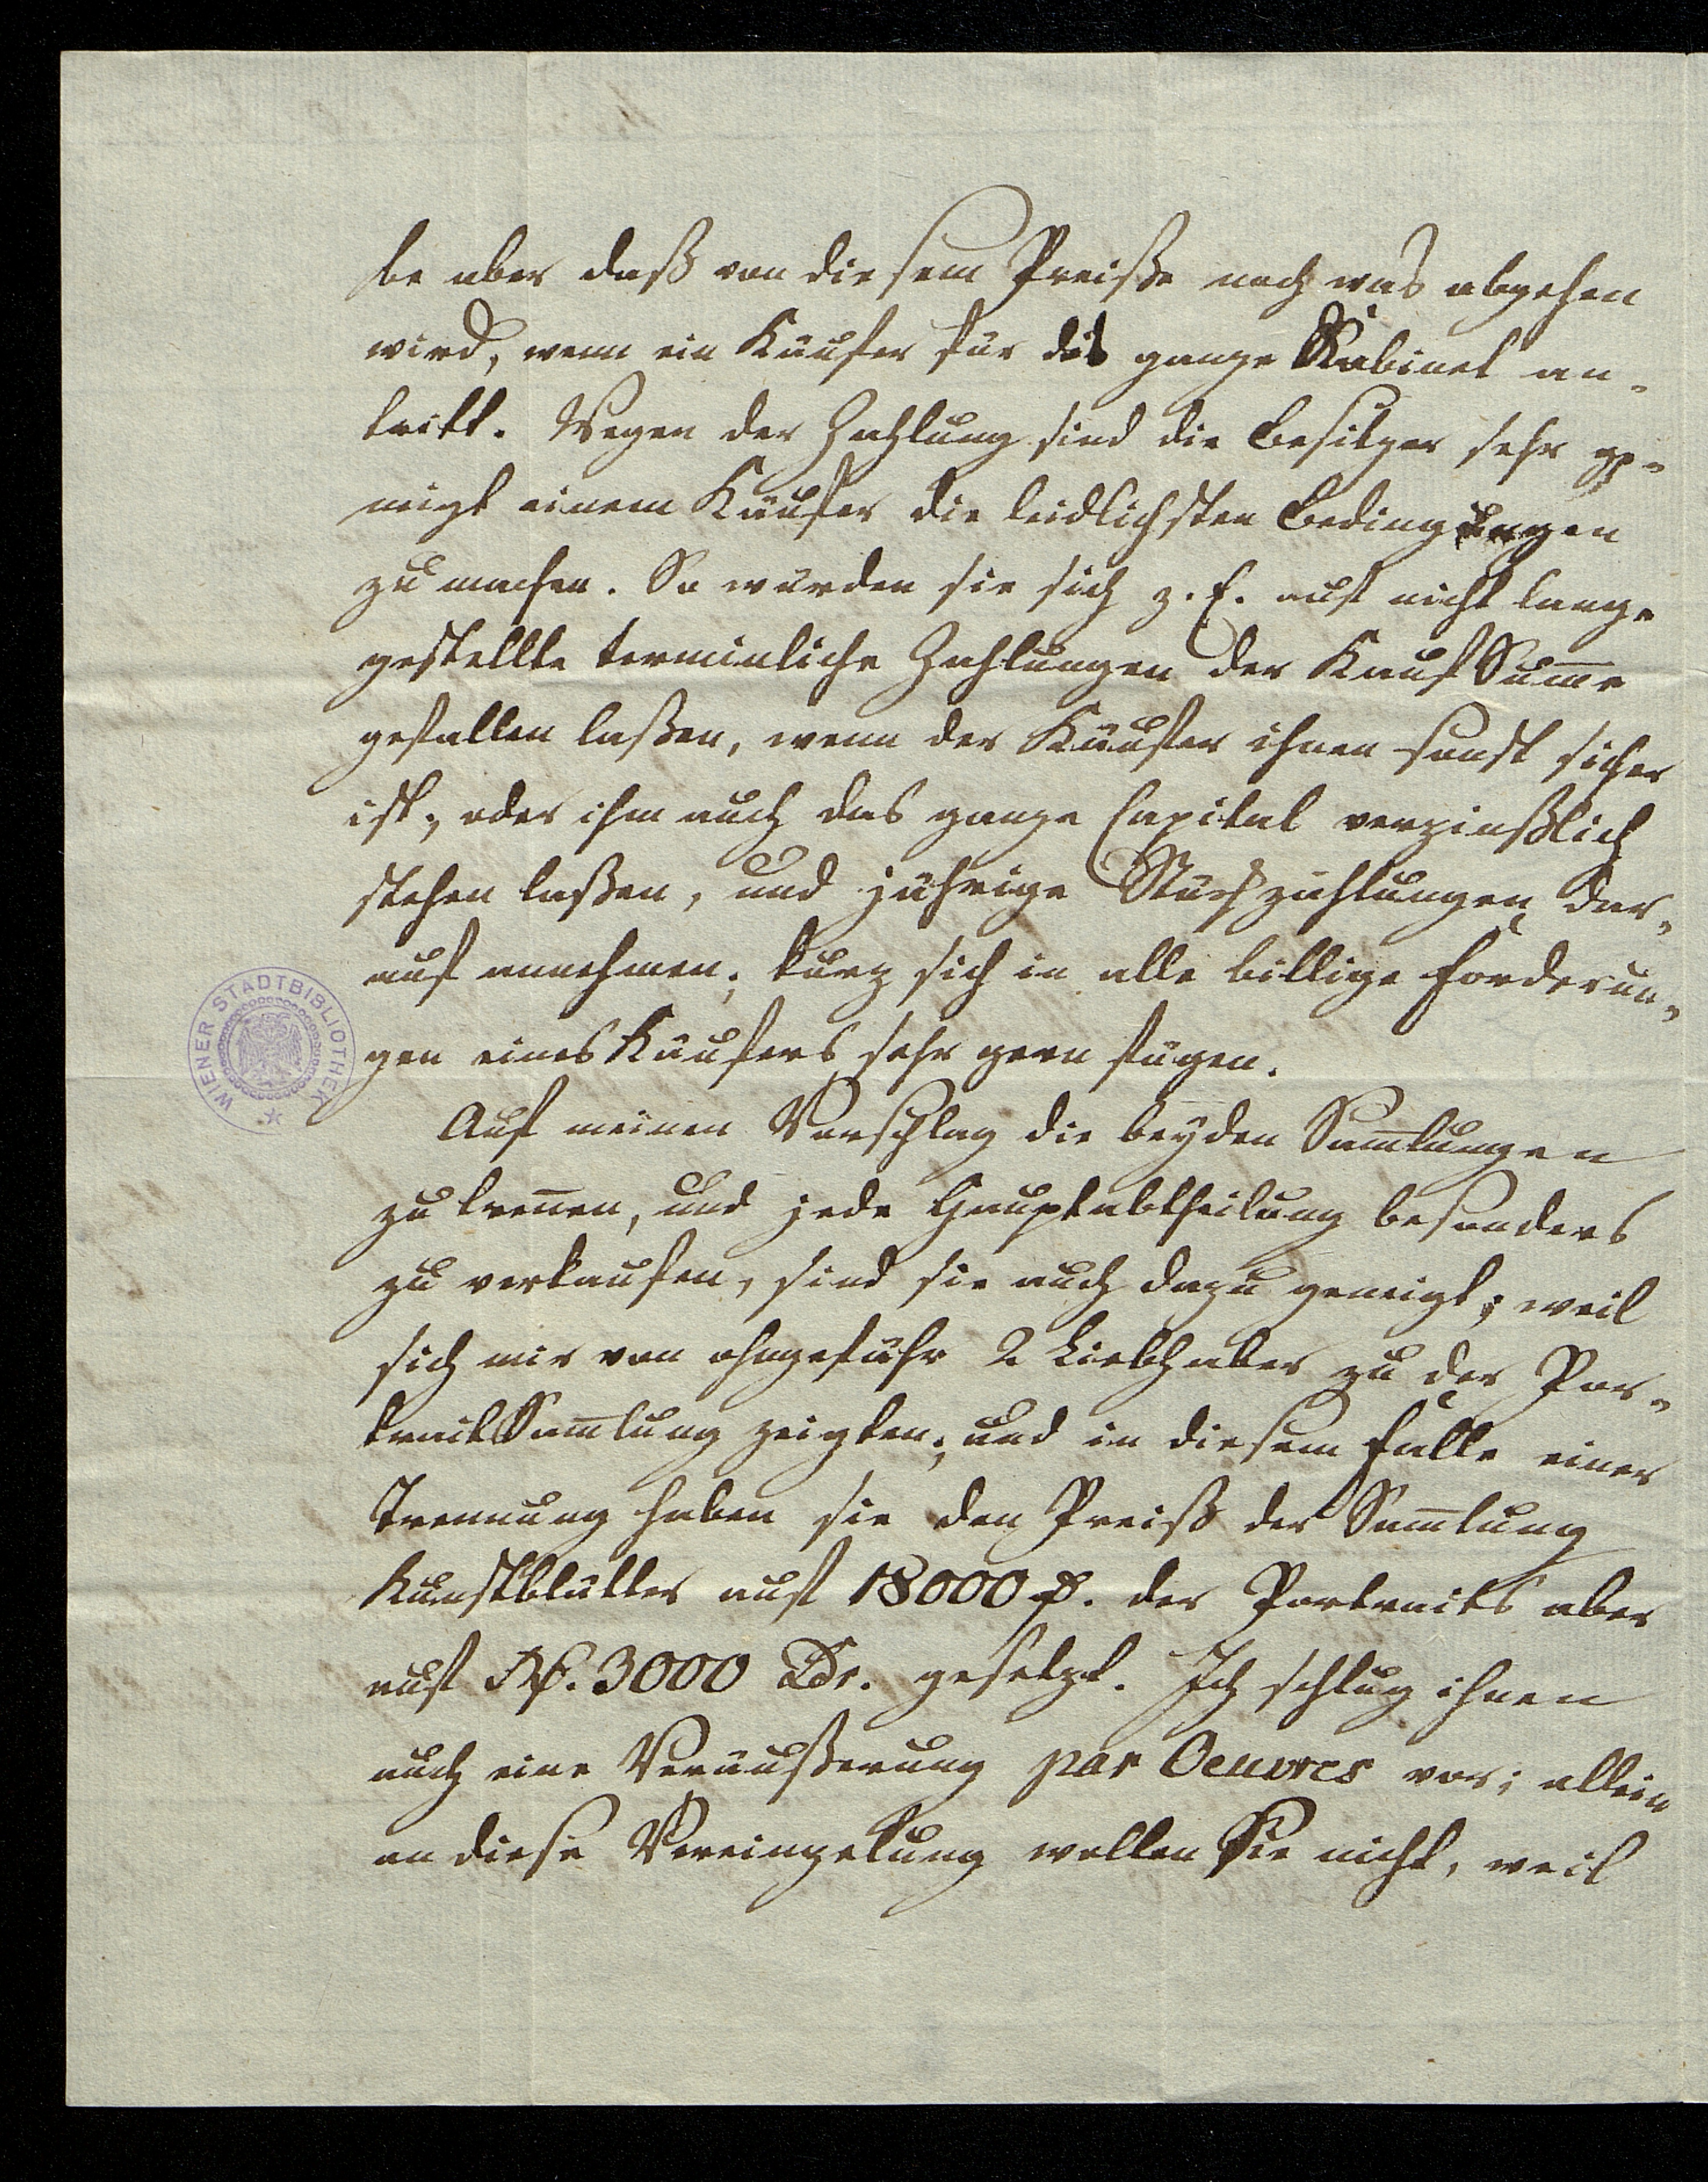 be aber daß von diesem Preiße noch was abgehen
wird, wenn ein Käufer für das ganze Kabinet an-
tritt. Wegen der Zahlung sind die Besitzer sehr ge-
neigt einem Käufer die leidlichsten Bedingungen
zu machen. So würden sie sich z. E. auf nicht lange
gestellte terminliche Zahlungen der Kauf Sum̅e
gefallen laßen, wenn der Käufer ihnen sonst sicher
ist, oder ihm auch das ganze Capital verzinßlich
stehen laßen, und jährige Stückzahlungen dar-
auf annehmen; kurz sich in alle billige Forderun-
gen eines Käufers sehr gern fügen.
WIENER STADTBIBLIOTHEK
Auf meinen Vorschlag die beyden Sam̅lungen
zu tren̅en, und jede Hauptabtheilung besonders
zu verkaufen, sind sie auch dazu geneigt; weil
sich mir von ohngefähr 2 Liebhaber zu der Por-
trait Sam̅lung zeigten; und in diesem Falle einer
Trennung haben sie den Preiß der Sam̅lung
Kunstblätter auf 18000 f. der Portraits aber
auf Rf. 3000 Ldr. gesetzt. Ich schlug ihnen
auch eine Veräußerung par Oeuvres vor; allein
an diese Vereinzelung wollen Sie nicht, weil